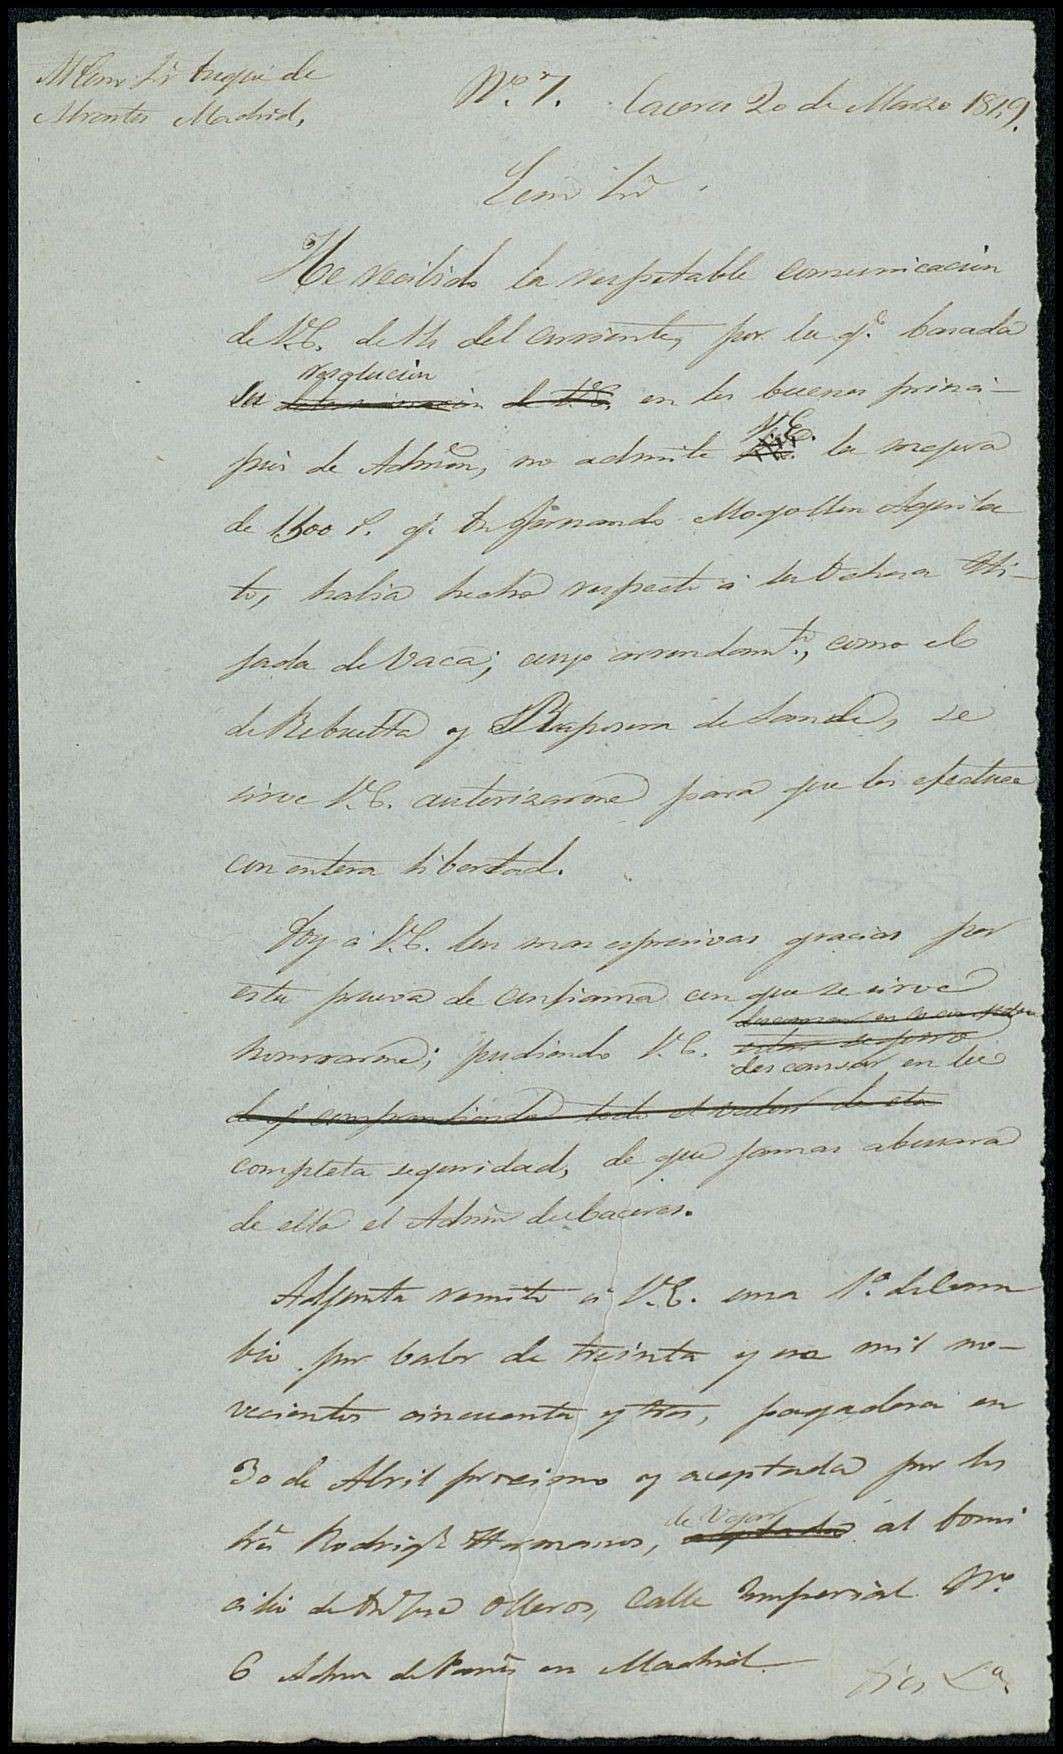 Excmo Sr Duque de
Abrantes Madrid,
Nº. 7. Caceres 20 de Marzo 1849.
Excmo Sr
He recibido la respetable comunicacion
de V.E. de 14 del corriente, por la q.e basada
resolucion
su determinacion de V.E. en los buenos princi-
V.E.
pios de Admon, no admite la mejora
de 1500 r. q.e Dn Fernando Mogollon
to, habia hecho respecto á la Dehesa Hi-
jada de Vaca; cuyo arrendamto, como el
de Rebuelta y Raposera de Sande, se
sirve V.E. autorizarme para que los efectue
con entera libertad.
Doy á V.E. las mas espresivas gracias por
esta prueva de confianza con que se sirve
honrarme; pudiendo V.E.
descansar en la
de q.e comprendiendo todo el valor de esta
completa seguridad, de que jamas abusara
de ella el Admor de Caceres.
Adjunta remito á V.E. una La. de Cam
bio por valor de treinta y un mil no-
vecientos cincuenta y tres, pagadera en
30 de Abril procsimo y aceptada por los
de Vejar
Sres Rodrigz Hermanos, aceptada al domi
cilio de Dn José Olleros, Calle Imperial Nº.
6 Admor de en Madrid.
Dios, &a.